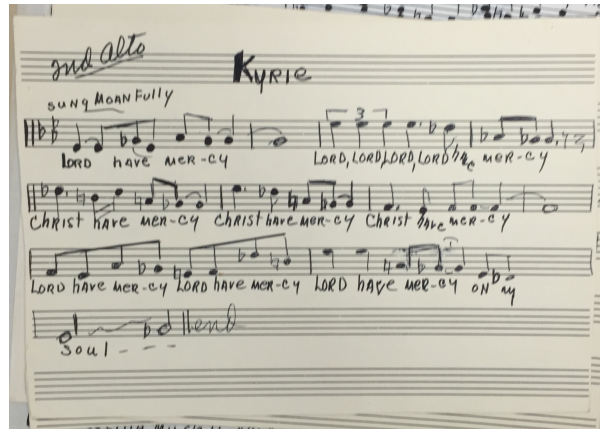 2nd Alto
KYRIE
SUNG MOANFULLY
LORD HAVE MER-CY LORD, LORD, LORD, LORD have MER-CY
CHRIST HAVE MER-CY CHRIST HAVE MER-CY CHRIST HAVE MER-CY
LORD HAVE MER-CY LORD HAVE MER-CY LORD HAVE MER-CY ON MY
SOUL - - - end